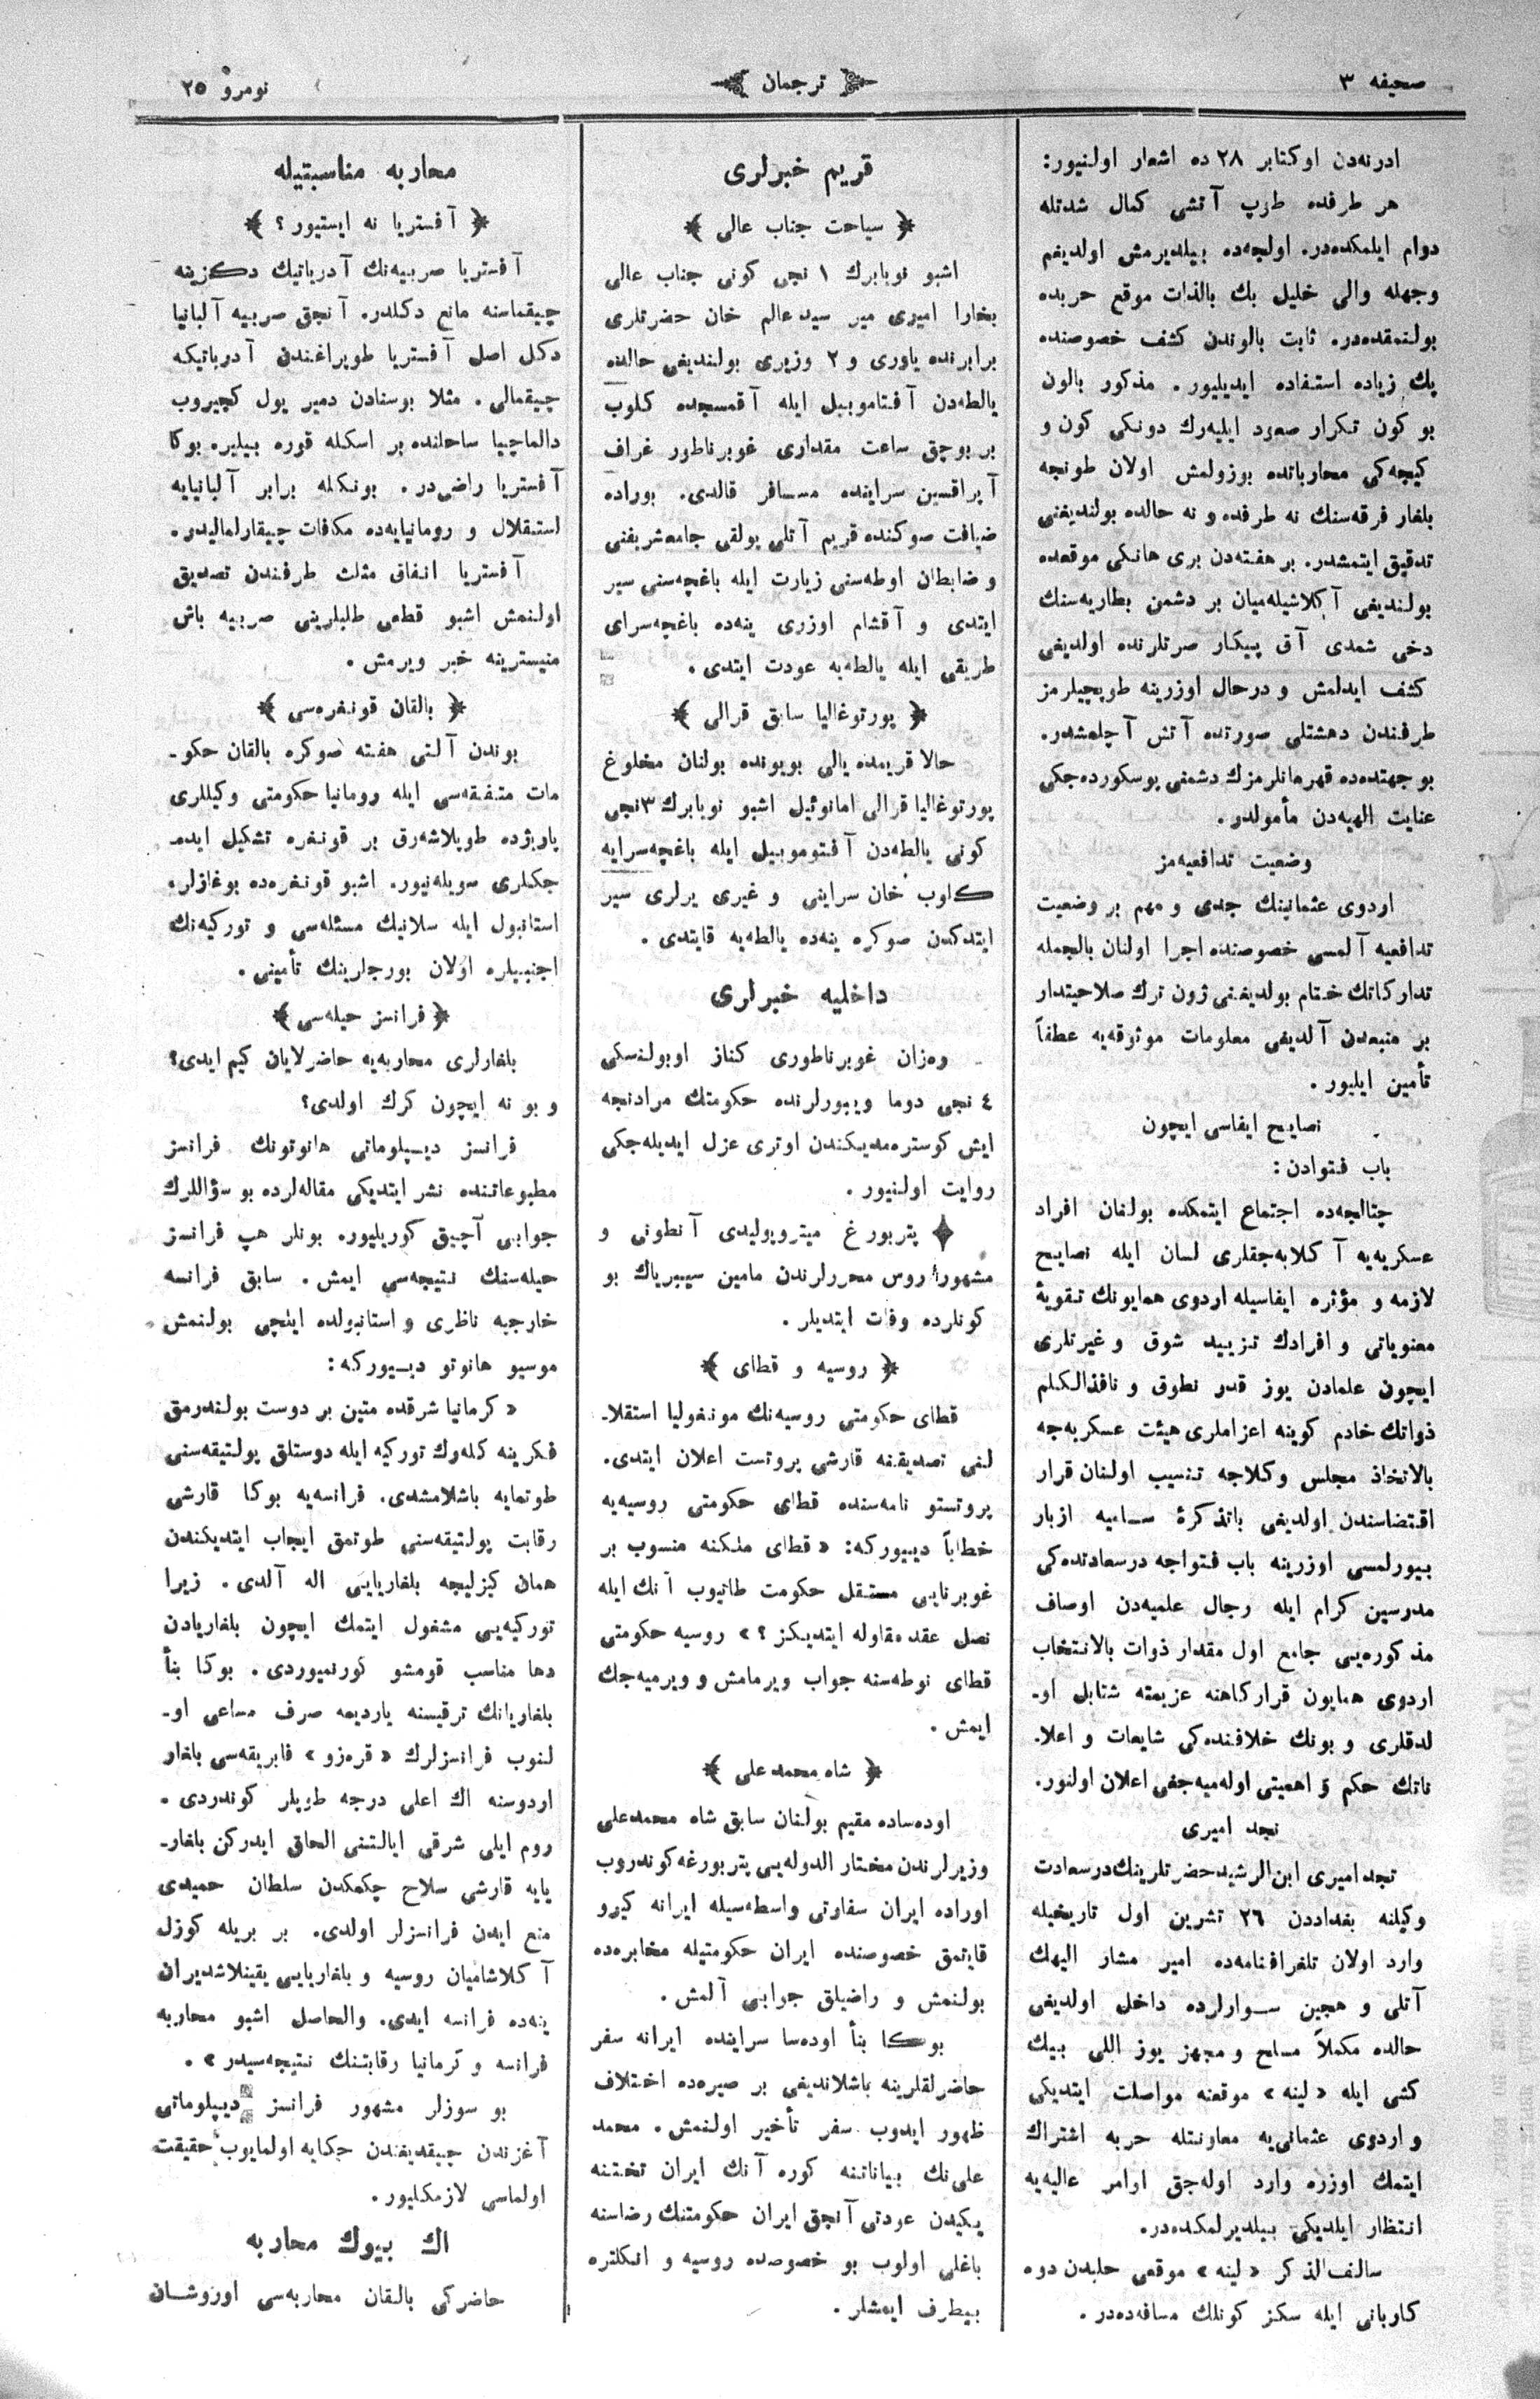 صحیفه ٣
ترجمان
نومرو ٢٥
ادرنه‌دن اوکتابر ٢٨ ده اشعار اولنیور:
هر طرفده طوپ آتشی کمال شدتله
دوام ایلمکده‌در. اولجه‌ده بیلدیرمش اولدیغم
وجهله والی خلیل بك بالذات موقع حربده
بولنمقده‌در. ثابت بالوندن کشف خصوصنده
پك زیاده استفاده ایدیلیور. مذکور بالون
بو کون تکرار صعود ایلیه‌رك دونکی کون و
کیجه‌کی محارباتده بوزولمش اولان طونجه
بلغار فرقه‌سنك نه طرفده و نه حالده بولندیغنی
تدقیق ایتمشدر. بر هفته‌دن بری هانکی موقعده
بولندیغی آکلاشیله‌میان بر دشمن بطاریه‌سنك
دخی شمدی آق پیکار صرتلرنده اولدیغی
کشف ایدلمش و درحال اوزرینه طوپچیلرمز
طرفندن دهشتلی صورتده آتش آچلمشدر.
بو جهتده‌ده قهرمانلرمزك دشمنی پوسکورده‌جکی
عنایت الهیه‌دن مأمولدر.
وضعیت تدافعیه‌مز
اردوی عثمانینك جدی و مهم بر وضعیت
تدافعیه آلمسی خصوصنده اجرا اولنان بالجمله
تدارکاتك ختام بولدیغنی ژون ترك صلاحیتدار
بر منبعدن آلدیغی معلومات موثوقه‌یه عطفاً
تأمین ایلیور.
نصایح ایفاسی ایچون
باب فتوادن:
چتالجه‌ده اجتماع ایتمکده بولنان افراد
عسکریه‌یه آکلایه‌جقلری لسان ایله نصایح
لازمه و مؤثره ایفاسیله اردوی همایونك تقویهٔ
معنویاتی و افرادك تزیید شوق و غیرتلری
ایچون علمادن یوز قدر نطوق و نافذالکلم
ذواتك خادم کوینه اعزاملری هیئت عسکریه‌جه
بالاتخاذ مجلس وکلاجه تنسیب اولنان قرار
اقتضاسندن اولدیغی باتذکرهٔ سامیه ازبار
بیورلمسی اوزرینه باب فتواجه درسعادتده‌کی
مدرسین کرام ایله رجال علمیه‌دن اوصاف
مذکوره‌یی جامع اول مقدار ذوات بالانتخاب
اردوی همایون قرارکاهنه عزیمته شتابل او-
لدقلری و بونك خلافنده‌کی شایعات و اعلا-
ناتك حکم و اهمیتی اوله‌میه‌جغی اعلان اولنور.
نجد امیری
نجد امیری ابن الرشید حضرتلرینك درسعادت
وکیلنه بغداددن ٢٦ تشرین اول تاریخیله
وارد اولان تلغرافنامه‌ده امیر مشار الیهك
آتلی و هجین سوارلرده داخل اولدیغی
حالده مکملاً مسلح و مجهز یوز اللی بیك
کشی ایله «لینه» موقعنه مواصلت ایتدیکی
و اردوی عثمانی‌یه معاونتله حربه اشتراك
ایتمك اوزره وارد اوله‌جق اوامر عالیه‌یه
انتظار ایلدیکی بیلدیرلمکده‌در.
سالف‌الذکر «لینه» موقعی حلبدن دوه
کاربانی ایله سکز کونلك مسافه‌ده‌در.
قریم خبرلری
﴿ سیاحت جناب عالی ﴾
اشبو نویابرك ١ نجی کونی جناب عالی
بخارا امیری میر سید عالم خان حضرتلری
برابرنده یاوری و ٢ وزیری بولندیغی حالده
یالطه‌دن آفتاموبیل ایله آقمسجده کلوب
بر بوچق ساعت مقداری غوبرناطور غراف
آپراقسین سراینده مسافر قالدی. بوراده
ضیافت صوکنده قریم آتلی پولقی جامع‌شریفنی
و ضابطان اوطه‌سنی زیارت ایله باغچه‌سنی سیر
ایتدی و آقشام اوزری ینه‌ده باغچه‌سرای
طریقی ایله یالطه‌یه عودت ایتدی.
﴿ پورتوغالیا سابق قرالی ﴾
حالا قریمده یالی بویونده بولنان مخلوغ
پورتوغالیا قرالی امانوئیل اشبو نویابرك ٣ نجی
کونی یالطه‌دن آفتوموبیل ایله باغچه‌سرایه
کلوب خان سراینی و غیری یرلری سیر
ایتدکدن صوکره ینه‌ده یالطه‌یه قایتدی.
داخلیه خبرلری
وه‌زان غوبرناطوری کناز اوبولنسکی
٤ نجی دوما ویبورلرنده حکومتك مرادنجه
ایش کوستره‌مدیکندن اوتری عزل ایدیله‌جکی
روایت اولنیور.
پتربورغ میتروپولیدی آنطونی و
مشهور روس محررلرندن مامین سیبریاك بو
کونلرده وفات ایتدیلر.
﴿ روسیه و قطای ﴾
قطای حکومتی روسیه‌نك مونغولیا استقلا-
لنی تصدیقنه قارشی پروتست اعلان ایتدی.
پروتستو نامه‌سنده قطای حکومتی روسیه‌یه
خطاباً دییورکه: «قطای ملکنه منسوب بر
غوبرنایی مستقل حکومت طانیوب آنك ایله
نصل عقد مقاوله ایتدیکز؟» روسیه حکومتی
قطای نوطه‌سنه جواب ویرمامش و ویرمیه‌جك
ایمش.
﴿ شاه محمد علی ﴾
اوده‌ساده مقیم بولنان سابق شاه محمد علی
وزیرلرندن مختار الدوله‌یی پتربورغه کوندروب
اوراده ایران سفارتی واسطه‌سیله ایرانه کیرو
قایتمق خصوصنده ایران حکومتیله مخابره‌ده
بولنمش و راضیلق جوابی آلمش.
بوکا بنأ اوده‌سا سراینده ایرانه سفر
حاضرلقلرینه باشلاندیغی بر صیره‌ده اختلاف
ظهور ایدوب سفر تأخیر اولنمش. محمد
علی‌نك بیاناتنه کوره آنك ایران تختنه
یکیدن عودتی آنجق ایران حکومتنك رضاسنه
باغلی اولوب بو خصوصده روسیه و انکلتره
بیطرف ایمشلر.
محاربه مناسبتیله
﴿ آفستریا نه ایستیور؟ ﴾
آفستریا صربیه‌نك آدریاتیك دکزینه
چیقماسنه مانع دکلدر. آنجق صربیه آلبانیا
دکل اصل آفستریا طوپراغندن آدریاتیکه
چیقمالی. مثلا بوسنادن دمیر یول کچیروب
دالماچیا ساحلنده بر اسکله قوره بیلیر. بوکا
آفستریا راضی‌در. بونکله برابر آلبانیایه
استقلال و رومانیایه‌ده مکافات چیقارلمالیدر.
آفستریا اتفاق مثلث طرفندن تصدیق
اولنمش اشبو قطعی طلبلرینی صربیه باش
منیسترینه خبر ویرمش.
﴿ بالقان قونغره‌سی ﴾
بوندن آلتی هفته صوکره بالقان حکو-
مات متفقه‌سی ایله رومانیا حکومتی وکیللری
پاریژده طوپلاشه‌رق بر قونغره تشکیل ایده-
جکلری سویله‌نیور. اشبو قونغره‌ده بوغازلر،
استانبول ایله سلانیك مسئله‌سی و تورکیه‌نك
اجنبیلره اولان بورجلرینك تأمینی.
﴿ فرانسز حیله‌سی ﴾
بلغارلری محاربه‌یه حاضرلایان کیم ایدی؟
و بو نه ایچون کرك اولدی؟
فرانسز دیپلوماتی هانوتونك فرانسز
مطبوعاتنده نشر ایتدیکی مقاله‌لرده بو سؤاللرك
جوابی آچیق کوریلیور. بونلر هپ فرانسز
حیله‌سنك نتیجه‌سی ایمش. سابق فرانسه
خارجیه ناظری و استانبولده ایلچی بولنمش
موسیو هانوتو دییورکه:
«کرمانیا شرقده متین بر دوست بولندرمق
فکرینه کله‌رك تورکیه ایله دوستلق پولتیقه‌سنی
طوتمایه باشلامشدی. فرانسه‌یه بوکا قارشی
رقابت پولتیقه‌سنی طوتمق ایجاب ایتدیکندن
همان کیزلیجه بلغاریایی اله آلدی. زیرا
تورکیه‌یی مشغول ایتمك ایچون بلغاریادن
دها مناسب قومشو کورنمیوردی. بوکا بنأ
بلغاریانك ترقیسنه یاردیمه صرف مساعی او-
لنوب فرانسزلرك «قره‌زو» فابریقه‌سی بلغار
اردوسنه اك اعلی درجه طوپلر کوندردی.
روم ایلی شرقی ایالتنی الحاق ایدرکن بلغار-
یایه قارشی سلاح چکمکدن سلطان حمیدی
منع ایدن فرانسزلر اولدی. بر بریله کوزل
آکلاشامیان روسیه و بلغاریایی یقینلاشدیران
ینه‌ده فرانسه ایدی. والحاصل اشبو محاربه
فرانسه و کرمانیا رقابتنك نتیجه‌سیدر».
بو سوزلر مشهور فرانسز دیپلوماتی
آغزندن چیقدیغندن حکایه اولمایوب حقیقت
اولماسی لازمکلیور.
اك بیوك محاربه
حاضرکی بالقان محاربه‌سی اوزوشان